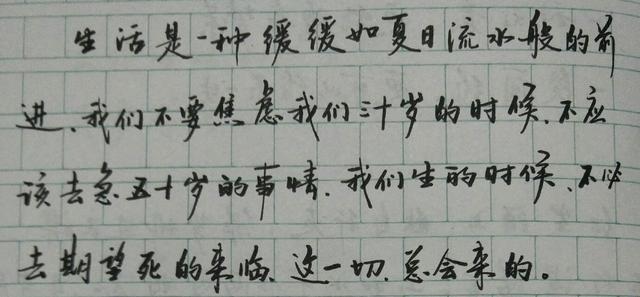 生活是一种缓缓如夏日流水般的前
进、我们不要焦虑我们三十岁的时候、不应
该去急五十岁的事情、我们生的时候、不必
去期望死的来临、这一切、总会来的。